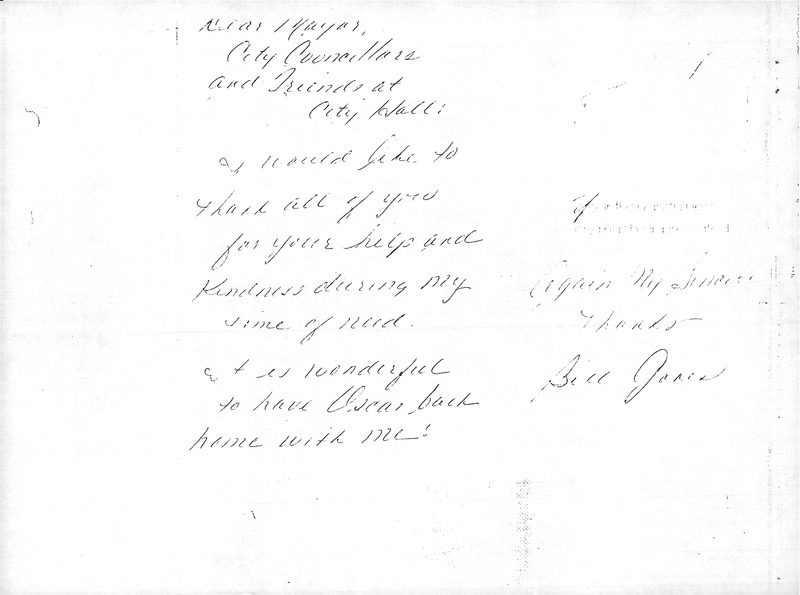 Dear Mayor,
City Councillars
and Friends at
City Hall:
I would like to
thank all of you
for your help and
kindness during my
time of need.
It is wonderful
to have Oscar back
home with me!
Again My Sincere
Thanks
Bill Jones